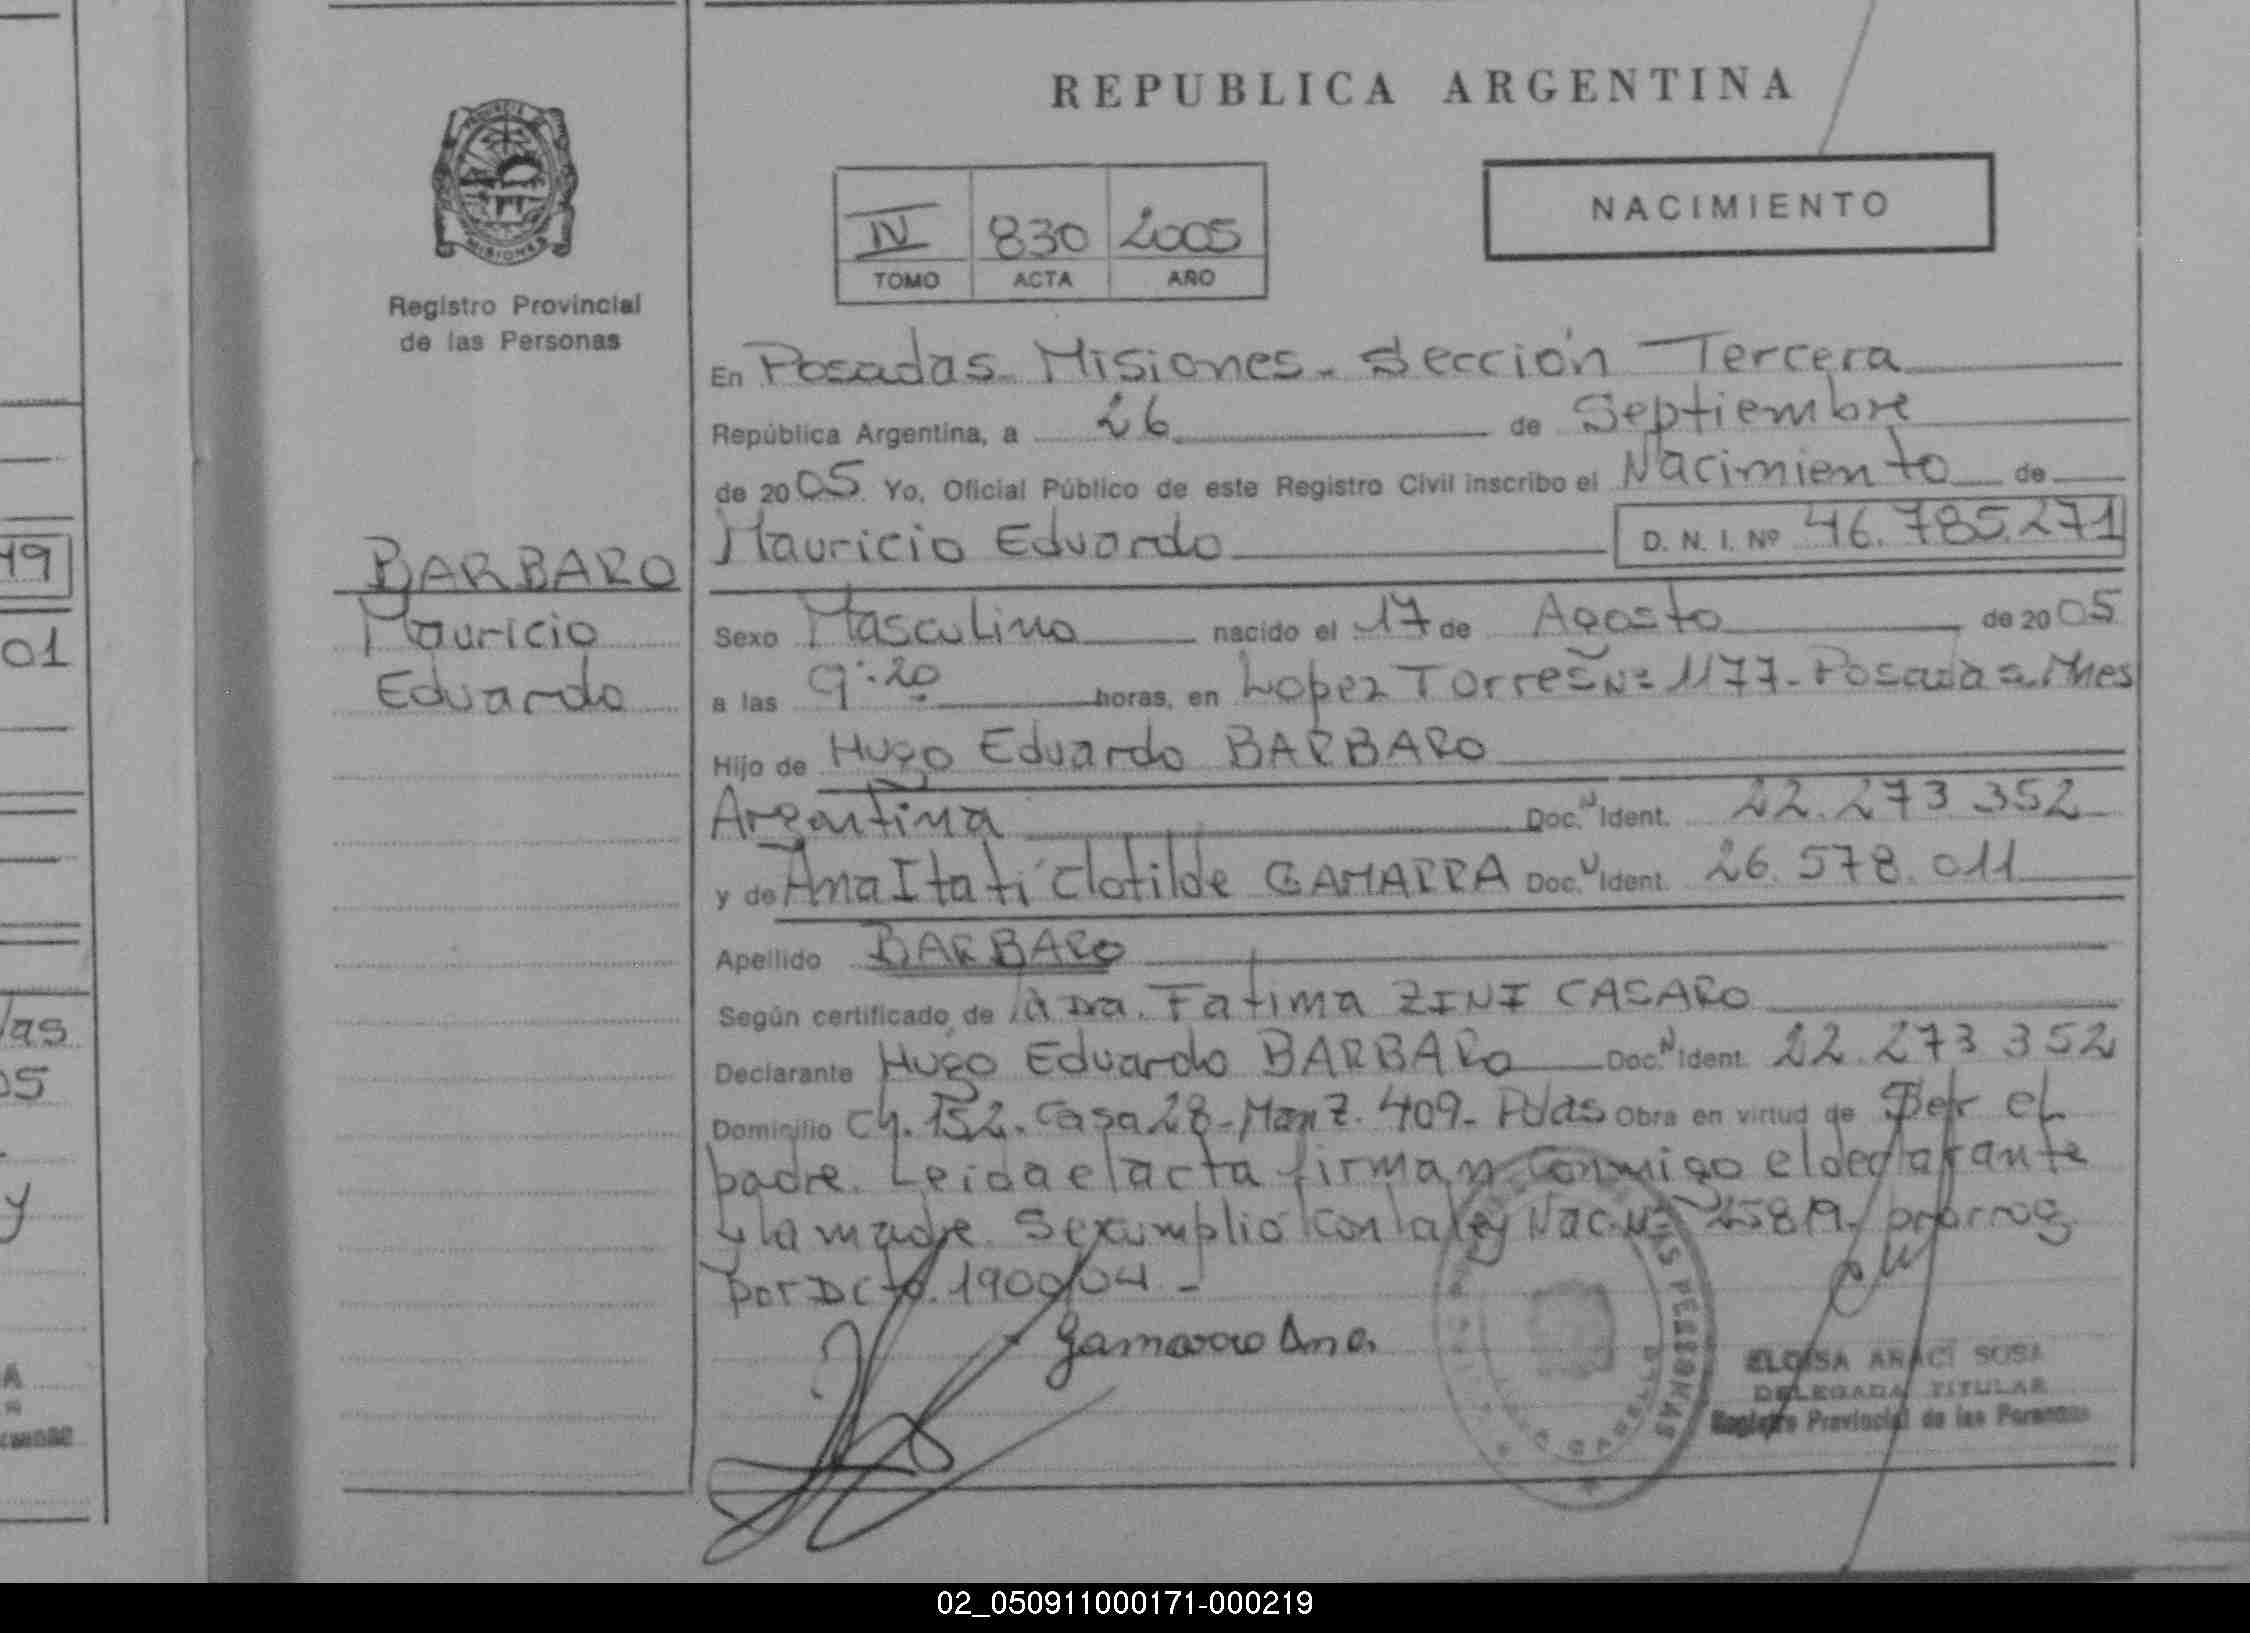 REPUBLICA ARGENTINA
PROVINCIA DE MISIONES
Registro Provincial
de las Personas
IV 830 2005
TOMO ACTA AÑO
NACIMIENTO
En Posadas- Misiones- Sección Tercera
República Argentina, a 26 de Septiembre
de 2005. Yo, Oficial Público de este Registro Civil inscribo el Nacimiento de
Mauricio Eduardo D. N. I. Nº 46.785.271
BARBARO
Mauricio
Eduardo
Sexo Masculino nacido el 17 de Agosto de 2005
a las 9:20 horas, en Lopez Torres Nº 1177- Posadas Mnes
Hijo de Hugo Eduardo BARBARO
Argentina Doc. N Ident. 22.273.352
y de Ana Itati Clotilde GAMARRA Doc. N Ident. 26.578.011
Apellido BARBARO
Según certificado de la Dra. Fatima ZINI CASARO
Declarante Hugo Eduardo BARBARO Doc. N Ident. 22.273 352
Domicilio Ch. 152. Casa 28- Manz. 409- Pdas Obra en virtud de Ser el
padre. Leida el acta firman conmigo el declarante
y la madre. Se cumplió con la ley Nac. Nº 25819, prorrog
por Dcto. 1900/04.-
Gamarra Ana.
ELOISA ARACI SOSA
DELEGADA TITULAR
Registro Provincial de las Personas
49
01
as
05
y
A
02_050911000171-000219